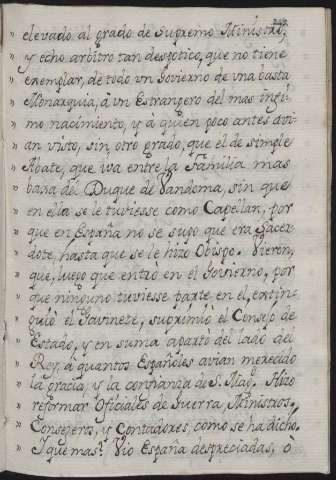 elevado al grado de Supremo Ministro,
" y echo arbitro tan despotico, que no tiene
" exemplar, de todo un Govierno de una basta
" Monarquia, à un Estrangero del mas infi-
" mo nacimiento, y à quien poco antes avi-
" an visto, sin otro grado, que el de simple
" Abate, que iva entre la Familia mas
" baxa del Duque de Vandoma, sin que
" en ella se le tuviesse como Capellan, por
" que en España no se supo que era Sacer-
" dote, hasta que se le hizo Obispo. Vieron,
" que, luego que entrò en el Govierno, por
" que ninguno tuviesse parte en el, extin-
" guiò el Gavinete, suprimiò el Consejo de
" Estado, y en suma apartò del lado del
" Rey, à quantos Españoles avian merecido
" la gracia, y la confianza de S. Mag. Hizo
" reformar Oficiales de Guerra, Ministros,
" Consejeros, y Contadores, como se ha dicho.
" Y que mas? Viò España despreciadas, ò